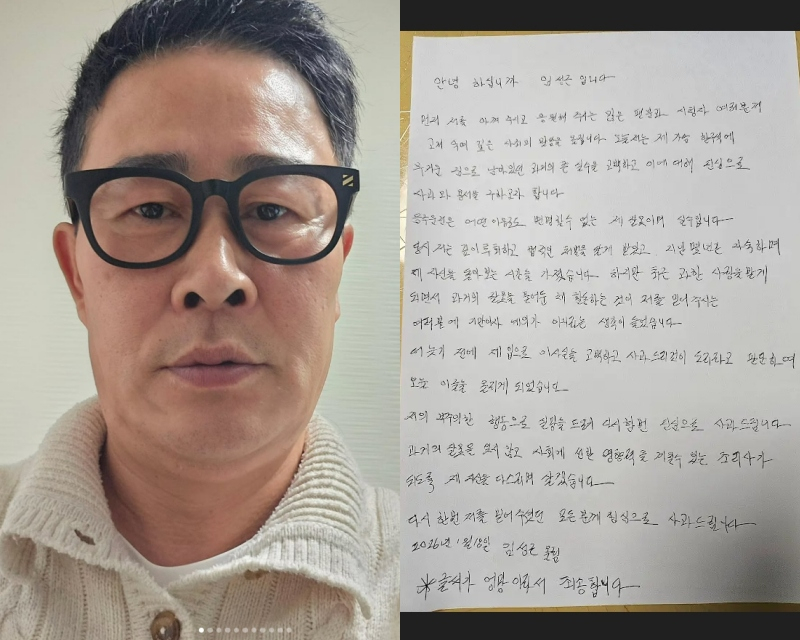 안녕 하십니까 임성근 입니다
먼저 저를 아껴 주시고 응원해 주시는 많은 팬분과 시청자 여러분께
고개 숙여 깊은 사죄의 말씀을 올립니다. 오늘 저는 제 가슴 한구석에
무거운 짐으로 남아있던 과거의 큰 실수를 고백하고 이에 대해 진심으로
사과와 용서를 구하고자 합니다
음주운전은 어떤 이유로도 변명할수 없는 제 잘못이며 실수입니다
당시 저는 깊이 후회하고 법적인 처벌을 달게 받았고, 지난 몇년간 자숙하며
제 자신을 돌아보는 시간을 가졌습니다. 하지만 최근 과한 사랑을 받게
되면서 과거의 잘못을 묻어둔 채 활동하는 것이 저를 믿어주시는
여러분에 예의가 아니라는 생각이 들었습니다
더 늦기 전에 제 입으로 이사실을 고백하고 사과드리는것이 도리라고 판단하여
오늘 이글을 올리게 되었습니다
저의 부주의한 행동으로 실망을 드려 다시한번 진심으로 사과드립니다
과거의 잘못을 잊지 않고 사회에 선한 영향력을 끼칠수 있는 조리사가
되도록 제 자신을 다스리며 살겠습니다
다시 한번 저를 믿어주셨던 모든분께 진심으로 사과드립니다
2026년 1월18일 임성근 올림
※글씨가 엉망이라서 죄송합니다